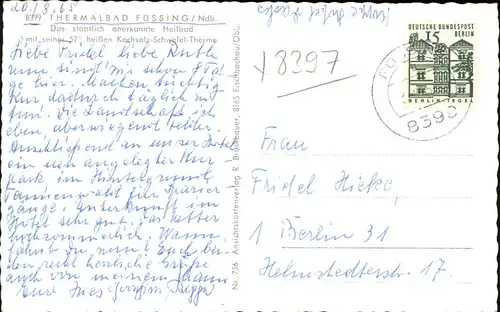 20./8.65
8399 THERMALBAD FÜSSING/Ndb.
Das staatlich anerkannte Heilbad
mit seiner 52° heißen Kochsalz-Schwefel-Therme
Liebe Friedel liebe Ruth
nun sind wir schon 8 Tage
hier. Machen tüchtig
Kur dadurch täglich
Die Landschaft ist
eben, überwiegend Felder.
Anschliessend an unser Hotel
ein neu angelegter Kur
park im Hintergrund
Tannenwald für Spazier
gänge. Unterkunft im
Hotel sehr gut. Das Wetter
hochsommerlich. Wann
fahrt Ihr nun? Euch bei-
den recht herzliche Grüße
auch von meinem Mann
Eure Ines
Nr. 736 - Ansichtskartenverlag R. Bruckbauer, 8165 Fischbachau/Obb.
8397
DEUTSCHE BUNDESPOST
BERLIN
15
BERLIN TEGEL
FÜ
8399
Frau
Friedel Hicke
1 Berlin 31
Helmstedterstr. 17